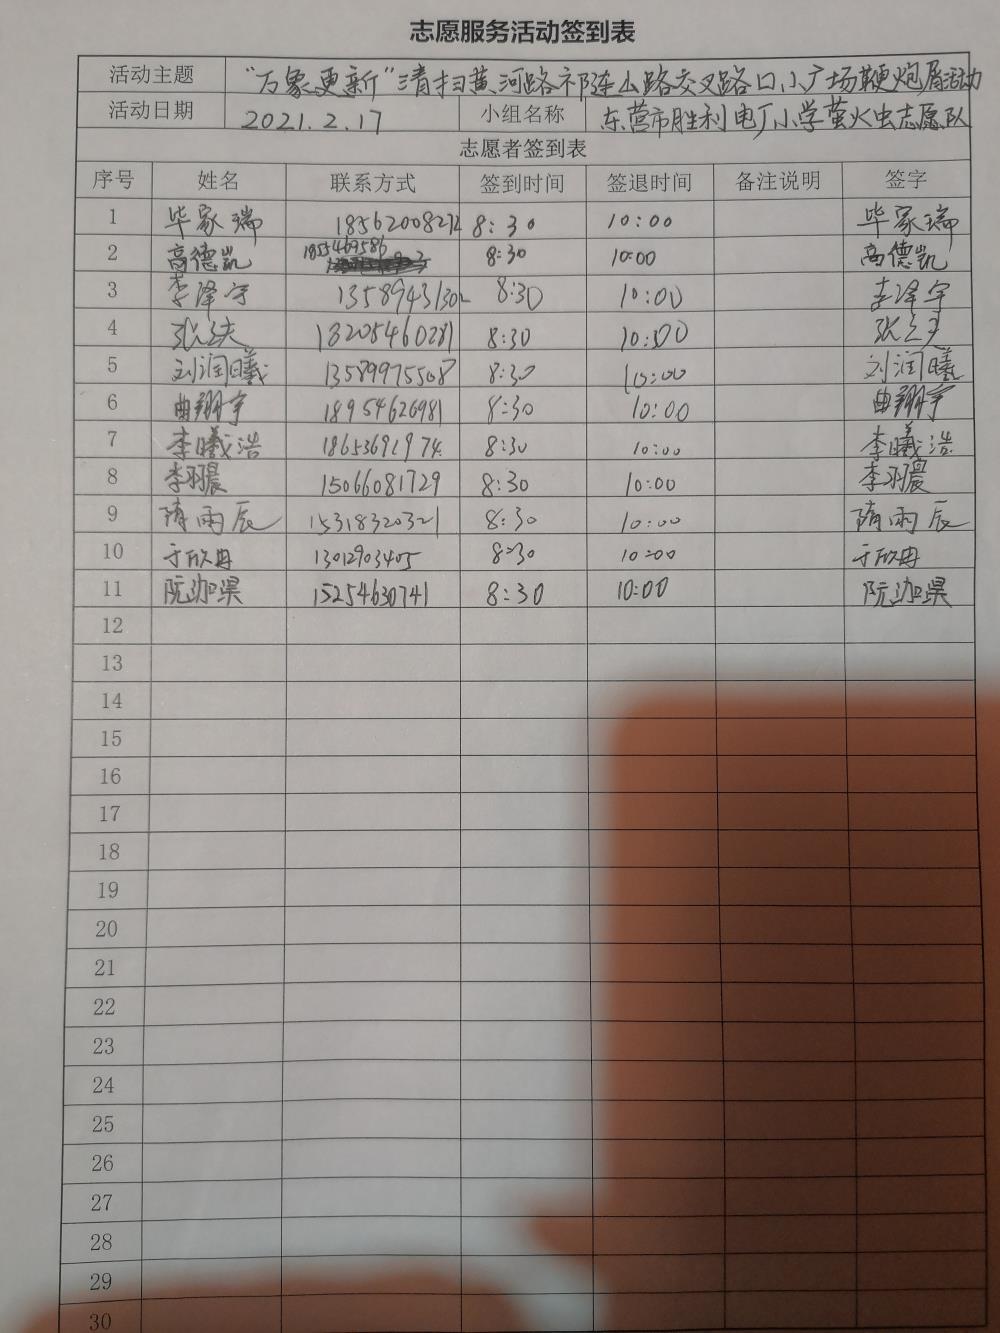 志愿服务活动签到表
活动主题 “万象更新”清扫黄河路祁连山路交叉路口小广场鞭炮屑活动
活动日期 2021.2.17 小组名称 东营市胜利电厂小学萤火虫志愿队
志愿者签到表
序号 姓名 联系方式 签到时间 签退时间 备注说明 签字
1 毕家瑞 8:30 10:00 毕家瑞
2 高德凯 1855469586 8:30 10:00 高德凯
3 李泽宇 8:30 10:00 李泽宇
4 18205460281 8:30 10:00
5 刘润曦 13589975508 8:30 10:00 刘润曦
6 曲翔宇 18954626981 8:30 10:00 曲翔宇
7 李曦浩 8:30 10:00 李曦浩
8 李羽晨 15066081729 8:30 10:00 李羽晨
9 隋雨辰 15318320321 8:30 10:00 隋雨辰
10 于欣冉 13012903405 8:30 10:00 于欣冉
11 15254630741 8:30 10:00
12
13
14
15
16
17
18
19
20
21
22
23
24
25
26
27
28
29
30